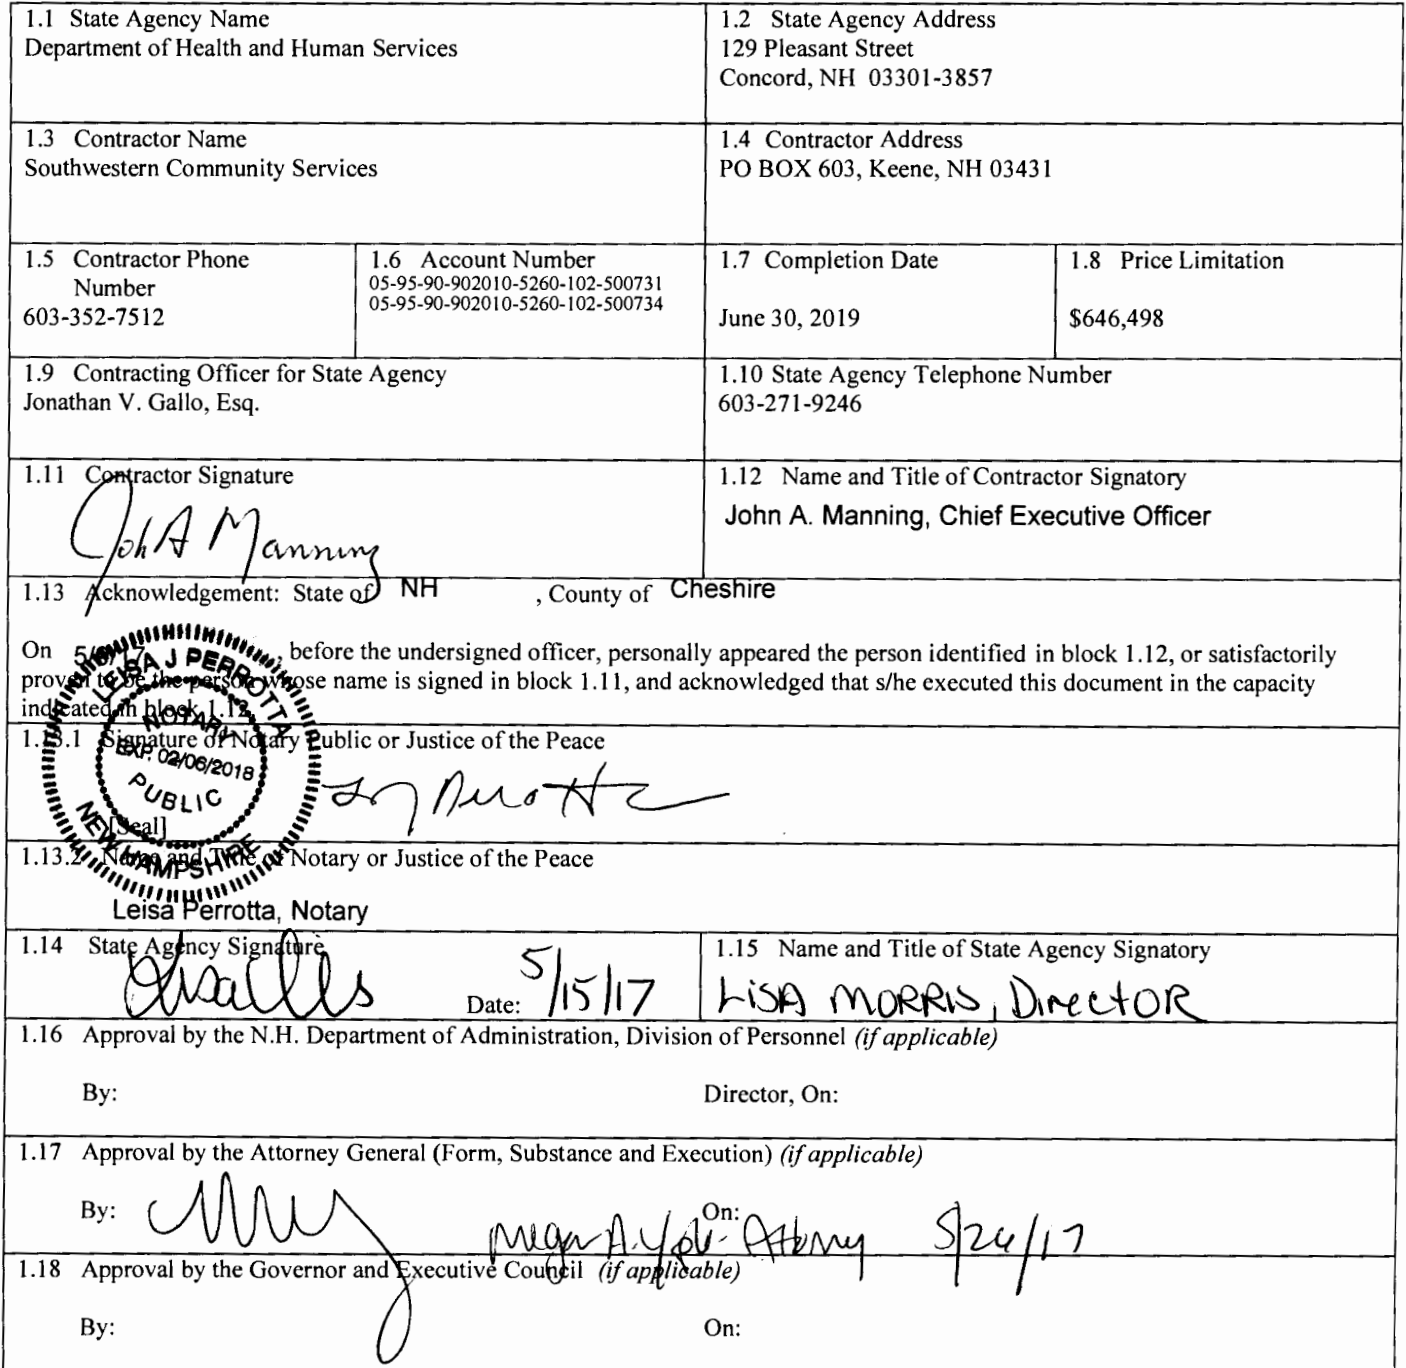 1.1 State Agency Name
Department of Health and Human Services
1.2 State Agency Address
129 Pleasant Street
Concord, NH 03301-3857
1.3 Contractor Name
Southwestern Community Services
1.4 Contractor Address
PO BOX 603, Keene, NH 03431
1.5 Contractor Phone
Number
603-352-7512
1.6 Account Number
05-95-90-902010-5260-102-500731
05-95-90-902010-5260-102-500734
1.7 Completion Date
June 30, 2019
1.8 Price Limitation
$646,498
1.9 Contracting Officer for State Agency
Jonathan V. Gallo, Esq.
1.10 State Agency Telephone Number
603-271-9246
1.11 Contractor Signature
John A Manning
1.12 Name and Title of Contractor Signatory
John A. Manning, Chief Executive Officer
1.13 Acknowledgement: State of NH , County of Cheshire
On , before the undersigned officer, personally appeared the person identified in block 1.12, or satisfactorily
proven to be the person whose name is signed in block 1.11, and acknowledged that s/he executed this document in the capacity
indicated in block 1.12.
LEISA J PERROTTA
NOTARY
EXP. 02/06/2018
PUBLIC
NEW HAMPSHIRE
1.13.1 Signature of Notary Public or Justice of the Peace
[Seal]
1.13.2 Name and Title of Notary or Justice of the Peace
Leisa Perrotta, Notary
1.14 State Agency Signature
Date: 5/15/17
1.15 Name and Title of State Agency Signatory
LISA MORRIS, DIRECTOR
1.16 Approval by the N.H. Department of Administration, Division of Personnel (if applicable)
By:
Director, On:
1.17 Approval by the Attorney General (Form, Substance and Execution) (if applicable)
By:
On:
Megan A. - Attorney 5/26/17
1.18 Approval by the Governor and Executive Council (if applicable)
By:
On: